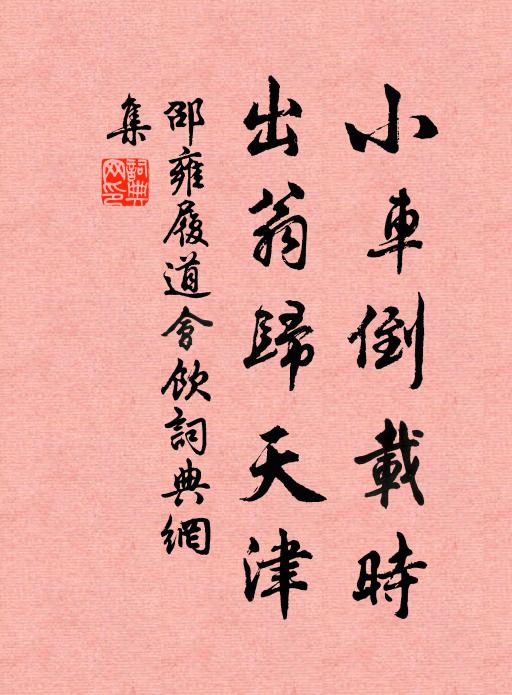 小車倒載時
出翁歸天津
邵雍履道會飲詞典網
集
詞典網印